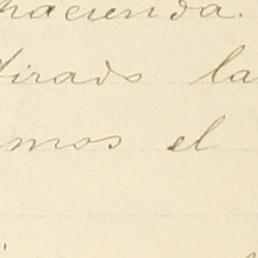 hacienda.
tirado la
mos el